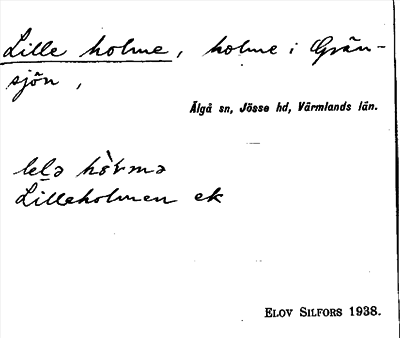 Lille holme, holme i Grän-
sjön,
Älgå sn, Jösse hd, Värmlands län.
Lilleholmen ek
ELOV SILFORS 1938.